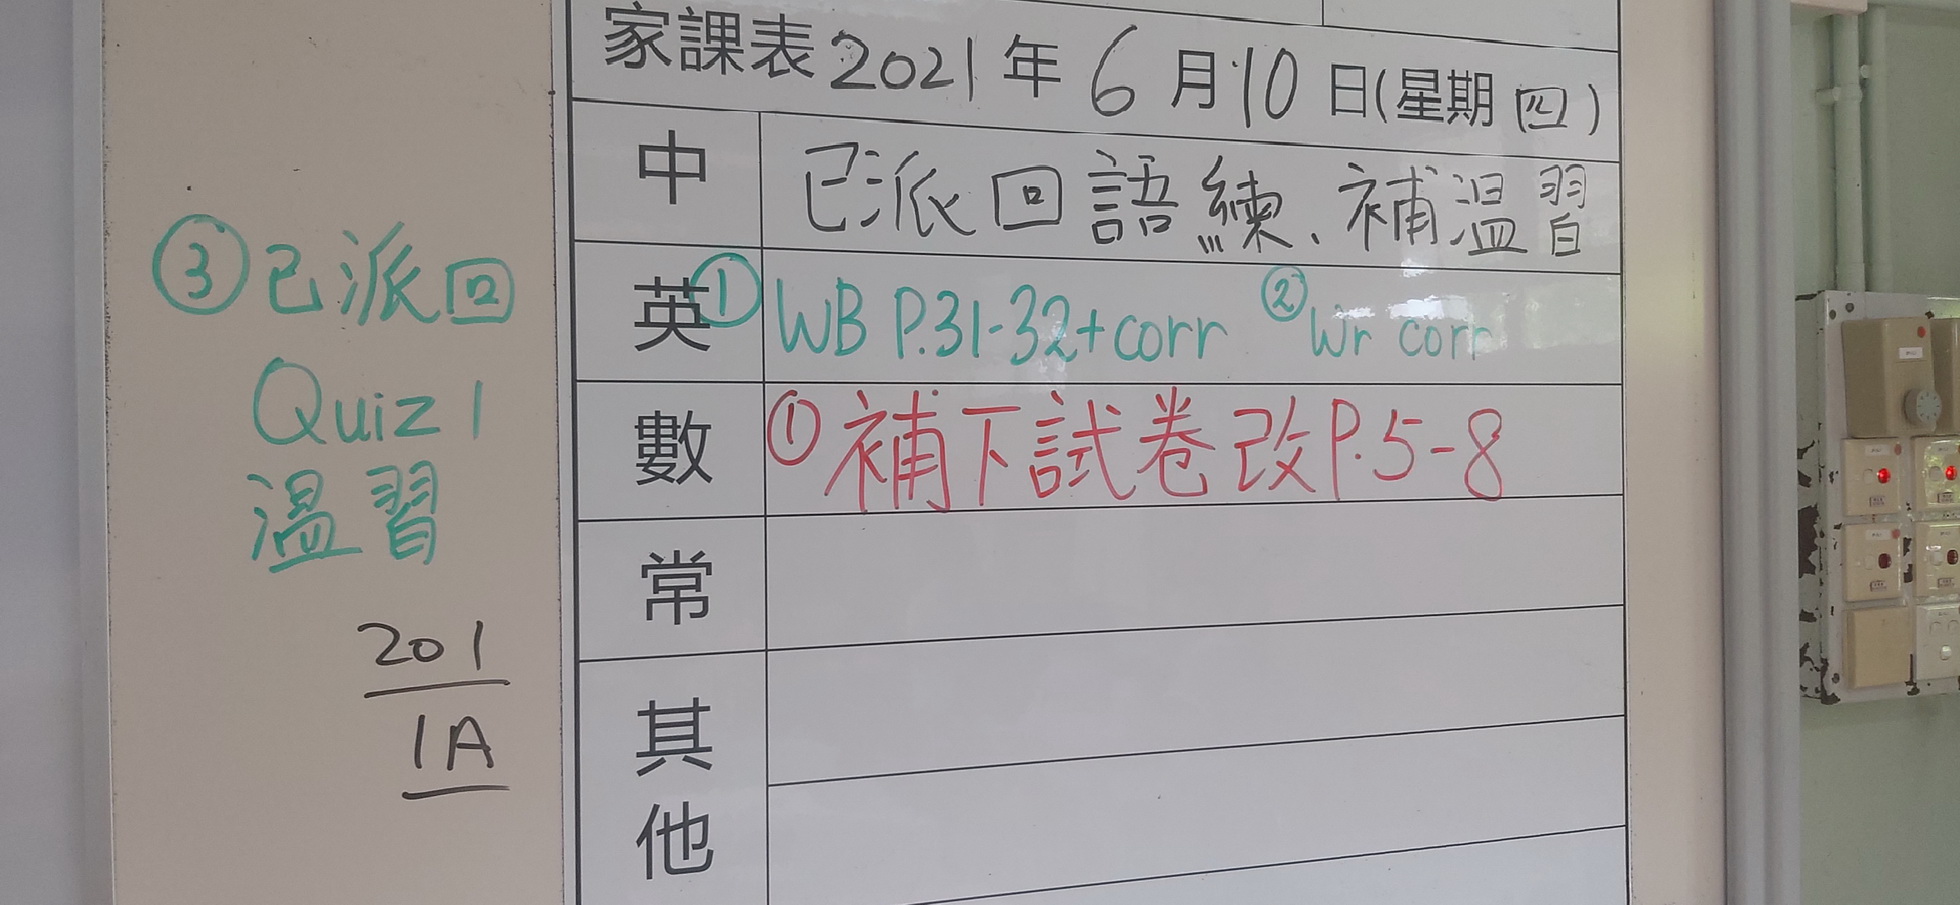 家課表 2021年 6月10日(星期四)
中 已派回語練、補溫習
英 ① WB P.31-32+corr ② Wr corr
數 ① 補下試卷改P.5-8
常
其他
③ 已派回
Quiz 1
溫習
201
1A